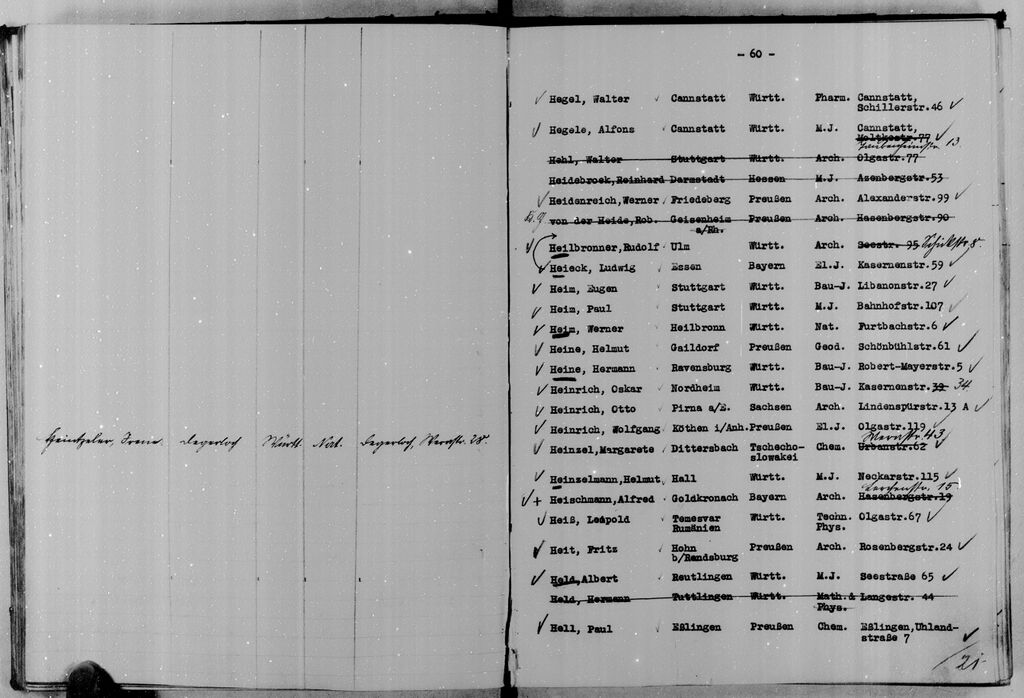 Irene Degerloch Württ. Nat. Degerloch, 28.
- 60 -
Hegel, Walter Cannstatt Württ. Pharm. Cannstatt,
Schillerstr.46
Hegele, Alfons Cannstatt Württ. M.J. Cannstatt,
Moltkestr.77
13
Hehl, Walter Stuttgart Württ. Arch. Olgastr.77
Heidebroek,Reinhard Darmstadt Hessen M.J. Azenbergstr.53
Heidenreich,Werner Friedeberg Preußen Arch. Alexanderstr.99
von der Heide,Rob. Geisenheim Preußen Arch. Hasenbergstr.90
a/Rh.
Heilbronner,Rudolf Ulm Württ. Arch. Seestr. 95 8
Heieck, Ludwig Essen Bayern El.J. Kasernenstr.59
Heim, Eugen Stuttgart Württ. Bau-J. Libanonstr.27
Heim, Paul Stuttgart Württ. M.J. Bahnhofstr.107
Heim, Werner Heilbronn Württ. Nat. Furtbachstr.6
Heine, Helmut Gaildorf Preußen Geod. Schönbühlstr.61
Heine, Hermann Ravensburg Württ. Bau-J. Robert-Mayerstr.5
Heinrich, Oskar Nordheim Württ. Bau-J. Kasernenstr.39 34
Heinrich, Otto Pirna a/E. Sachsen Arch. Lindenspürstr.13 A
Heinrich, Wolfgang Köthen i/Anh.Preußen El.J. Olgastr.119
Werastr. 43
Heinzel,Margarete Dittersbach Tschecho- Chem. Urbanstr.62
slowakei
Heinzelmann,Helmut Hall Württ. M.J. Neckarstr.115
Lerchenstr. 15
+ Heischmann,Alfred Goldkronach Bayern Arch. Hasenbergstr.19
Heiß, Leopold Temesvar Württ. Techn. Olgastr.67
Rumänien Phys.
Heit, Fritz Hohn Preußen Arch. Rosenbergstr.24
b/Rendsburg
Held,Albert Reutlingen Württ. M.J. Seestraße 65
Held, Hermann Tuttlingen Württ. Math.& Langestr. 44
Phys.
Hell, Paul Eßlingen Preußen Chem. Eßlingen,Uhland-
straße 7
21